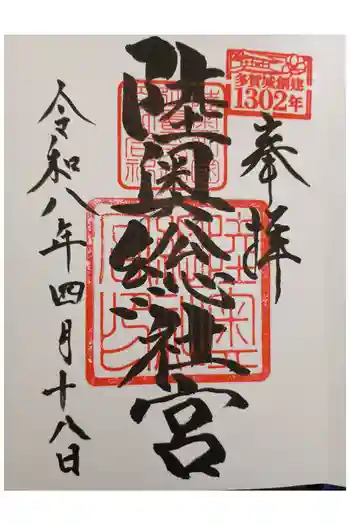 奉拝
多賀城創建
1302年
陸奥総社宮
令和八年四月十八日